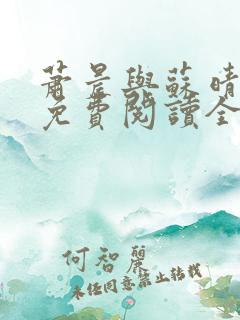 蕭晨與蘇晴
免費閱讀全
何智麗
未经同意禁止转载